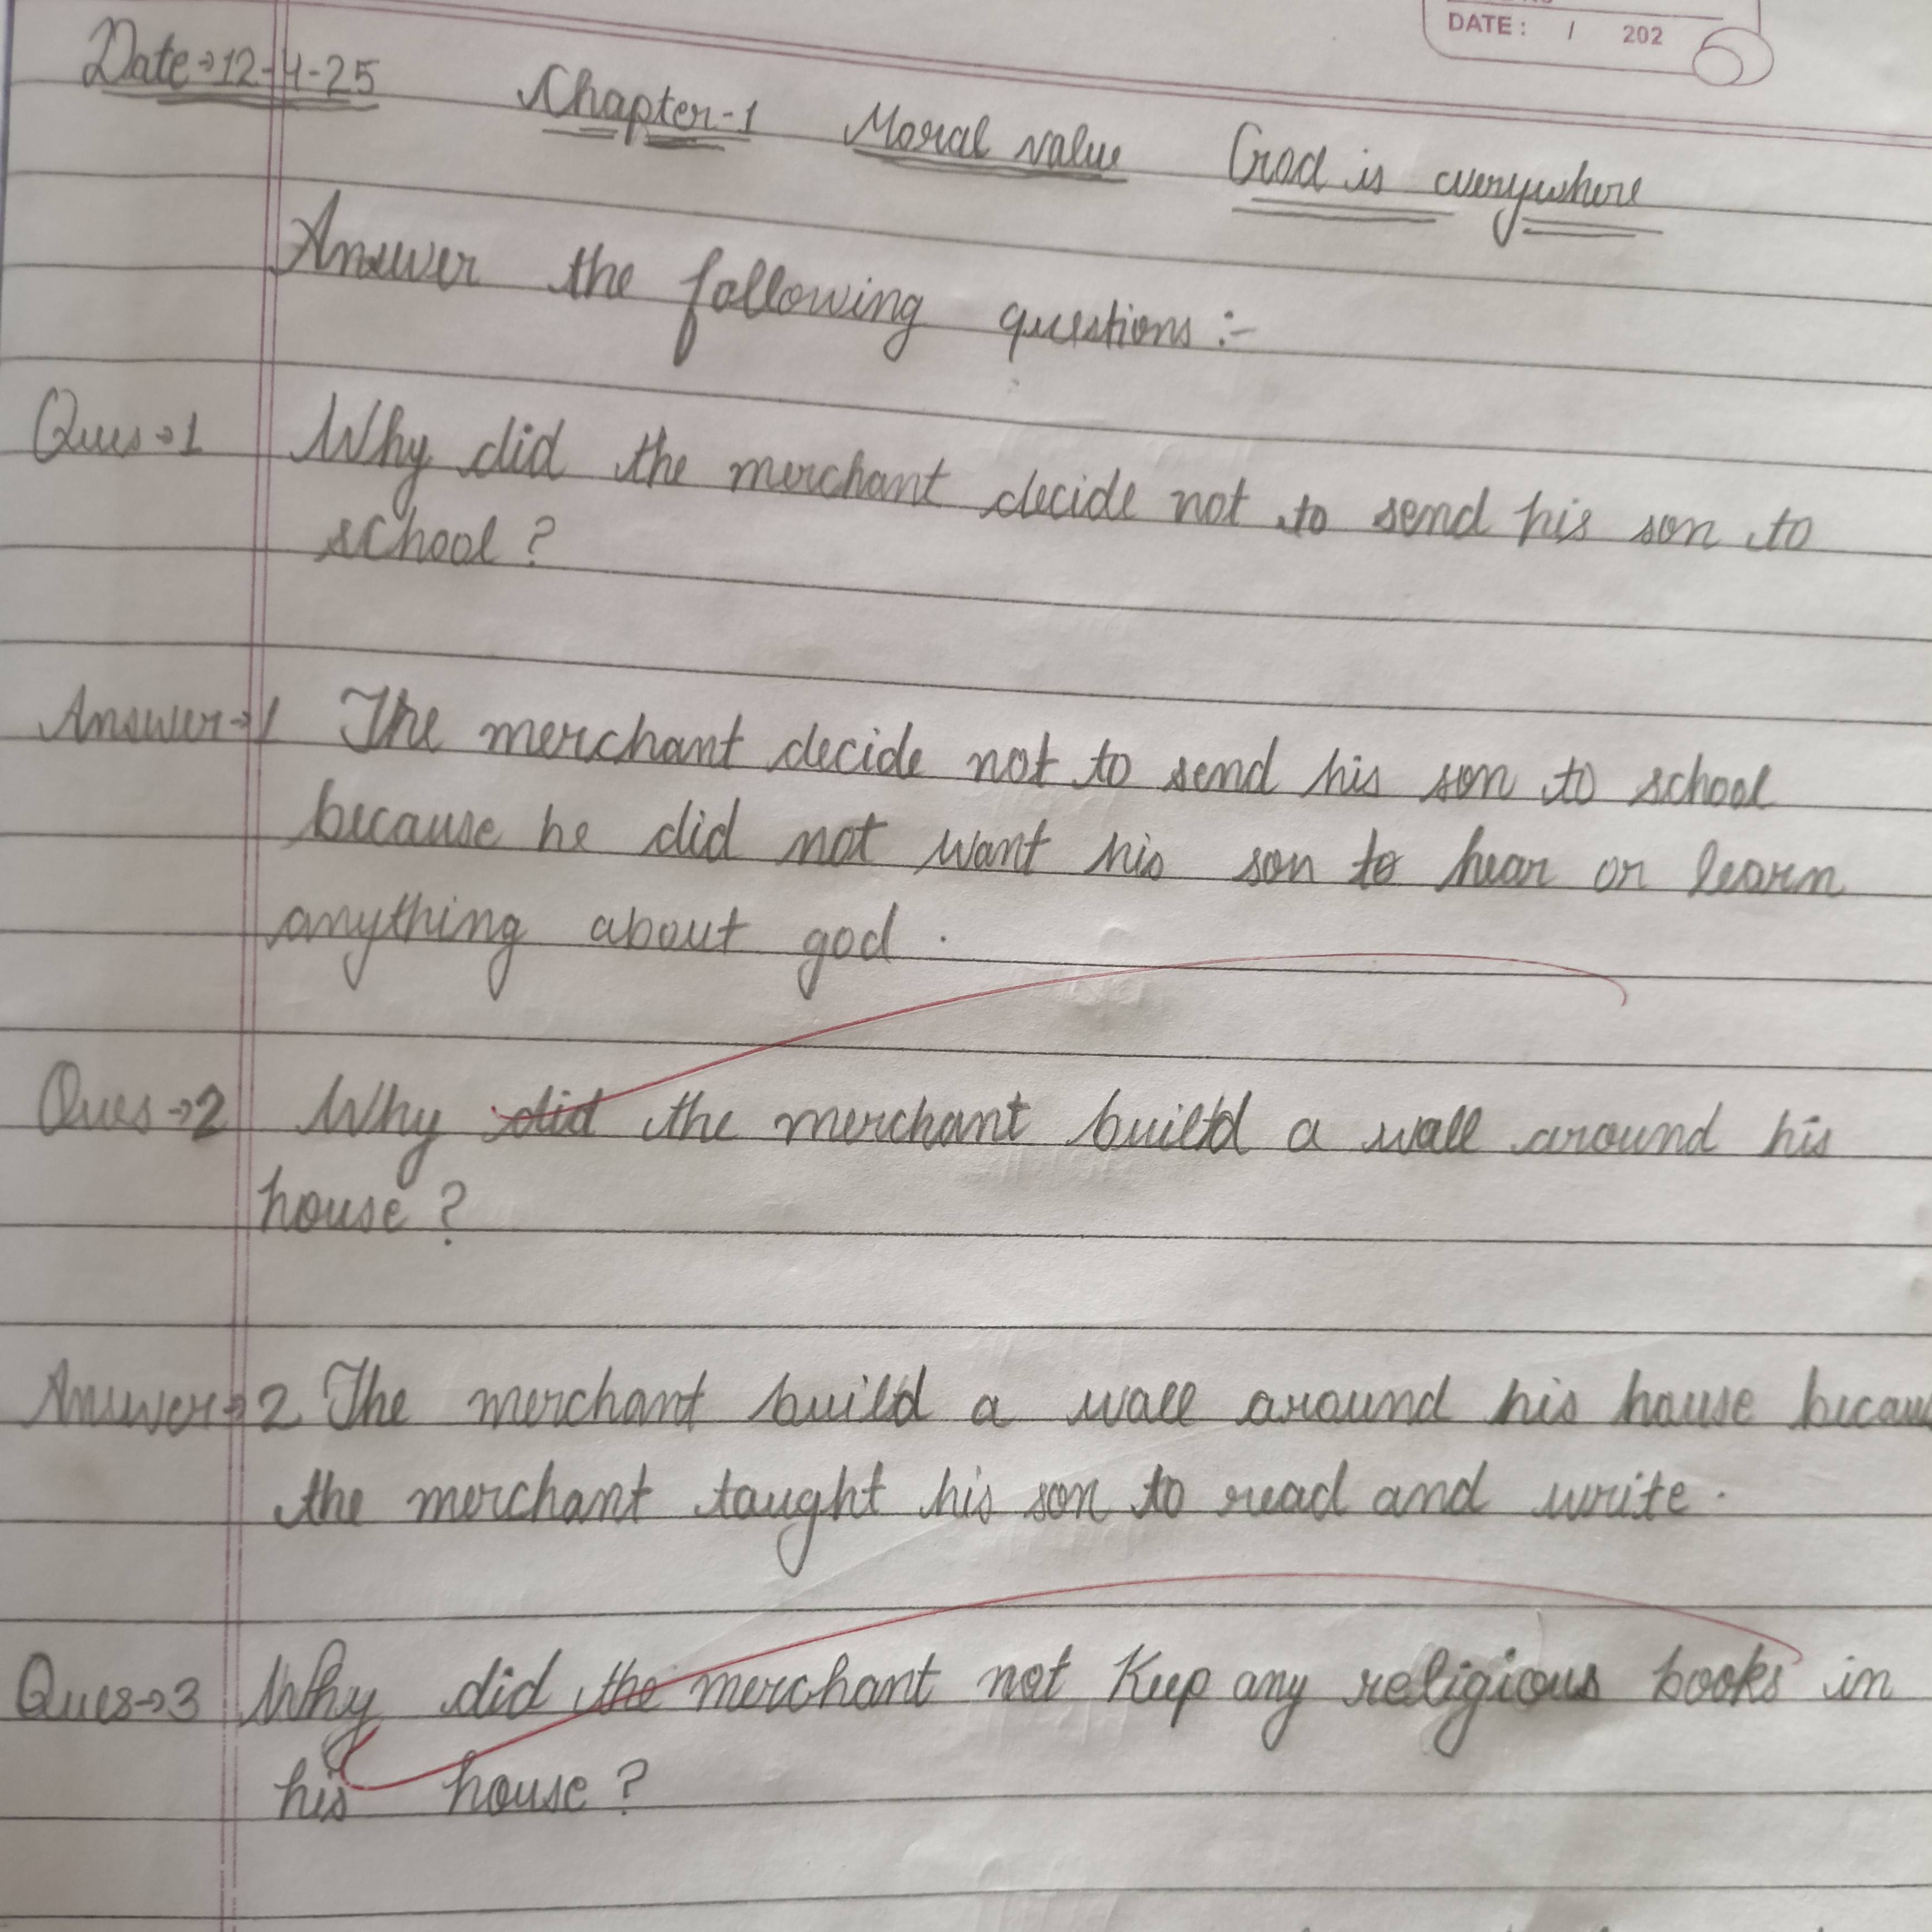 DATE: / 202
Date→12-4-25 Chapter-1 Moral value God is everywhere
Answer the following questions :-
Ques→1 Why did the merchant decide not to send his son to
school?
Answer→1 The merchant decide not to send his son to school
because he did not want his son to hear or learn
anything about god.
Ques→2 Why did the merchant build a wall around his
house?
Answer→2 The merchant build a wall around his house becau
the merchant taught his son to read and write.
Ques→3 Why did the merchant not Keep any religious books in
his house?